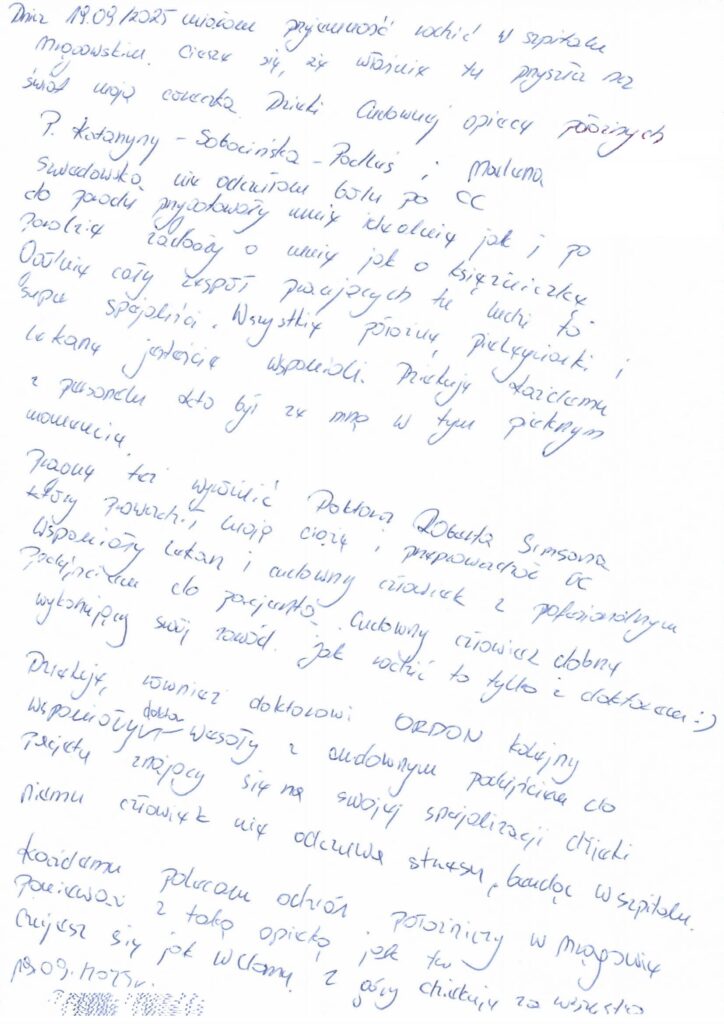 Dnia 19.09/2025 miałam przyjemność rodzić w szpitalu
Mrągowskim. Cieszę się, że właśnie tu przyszła na
świat moja córeczka. Dzięki Cudownej opiece położnych
P. Katarzyny - Sobocińska - Podluś i Marlena
Swadowska nie odczułam bólu po CC
do porodu przygotowały mnie idealnie jak i po
porodzie zadbały o mnie jak o księżniczkę
Ogólnie cały zespół pracujących tu ludzi to
super specjaliści. Wszystkie położne, pielęgniarki i
lekarze jesteście wspaniali. Dziękuję każdemu
z personelu kto był ze mną w tym pięknym
momencie.
Pragnę też wyróżnić Doktora Roberta Simsona
który prowadził moją ciążę i przeprowadzał CC
Wspaniały lekarz i cudowny człowiek z profesjonalnym
podejściem do pacjenta. Cudowny człowiek dobry
wykonujący swój zawód. Jak rodzić to tylko z doktorem :)
Dziękuję również doktorowi ORDON kolejny
wspaniały doktor wesoły z cudownym podejściem do
pacjenta znający się na swojej specjalizacji dzięki
niemu człowiek nie odczuwa stresu, będąc w szpitalu.
Każdemu polecam oddział położniczy w Mrągowie
ponieważ z taką opieką jak tu
czujesz się jak w domu. Z góry dziękuję za wszystko
19.09.2025r.